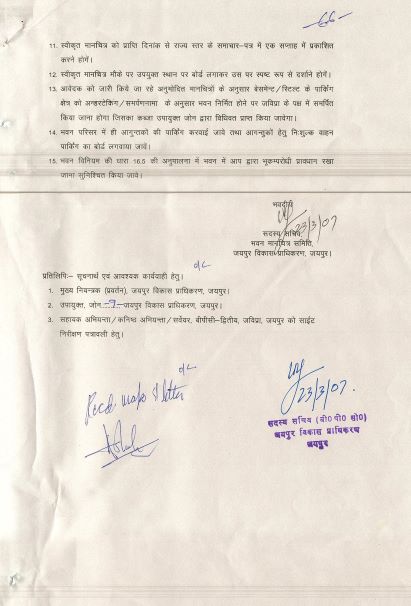 -66-
11. स्वीकृत मानचित्र को प्राप्ति दिनांक से राज्य स्तर के समाचार-पत्र में एक सप्ताह में प्रकाशित
करने होगें।
12. स्वीकृत मानचित्र मौके पर उपयुक्त स्थान पर बोर्ड लगाकर उस पर स्पष्ट रूप से दर्शाने होगें।
13. आवेदक को जारी किये जा रहे अनुमोदित मानचित्रों के अनुसार बेसमेन्ट/स्टिल्ट के पार्किंग
क्षेत्र को अन्डरटेकिंग/समर्पणनामा के अनुसार भवन निर्मित होने पर जविप्रा के पक्ष में समर्पित
किया जाना होगा जिसका कब्जा उपायुक्त जोन द्वारा विधिवत प्राप्त किया जावेगा।
14. भवन परिसर में ही आगुन्तकों की पार्किंग करवाई जावे तथा आगन्तुकों हेतु निःशुल्क वाहन
पार्किंग का बोर्ड लगवाया जावें।
15. भवन विनियम की धारा 16.5 की अनुपालना में भवन में आप द्वारा भूकम्परोधी प्रावधान रखा
जाना सुनिश्चित किया जावे।
भवदीय
23/3/07
सदस्य सचिव,
भवन मानचित्र समिति,
जयपुर विकास प्राधिकरण, जयपुर।
o/c
प्रतिलिपिः– सूचनार्थ एवं आवश्यक कार्यवाही हेतु।
1. मुख्य नियन्त्रक (प्रवर्तन), जयपुर विकास प्राधिकरण, जयपुर।
2. उपायुक्त, जोन-9-जयपुर विकास प्राधिकरण, जयपुर।
3. सहायक अभियन्ता/कनिष्ठ अभियन्ता/सर्वेयर, बीपीसी–द्वितीय, जविप्रा, जयपुर को साईट
निरीक्षण पत्रावली हेतु।
o/c
Recd maps & letter
23/3/07.
सदस्य सचिव (बी० पी० सी०)
जयपुर विकास प्राधिकरण
जयपुर